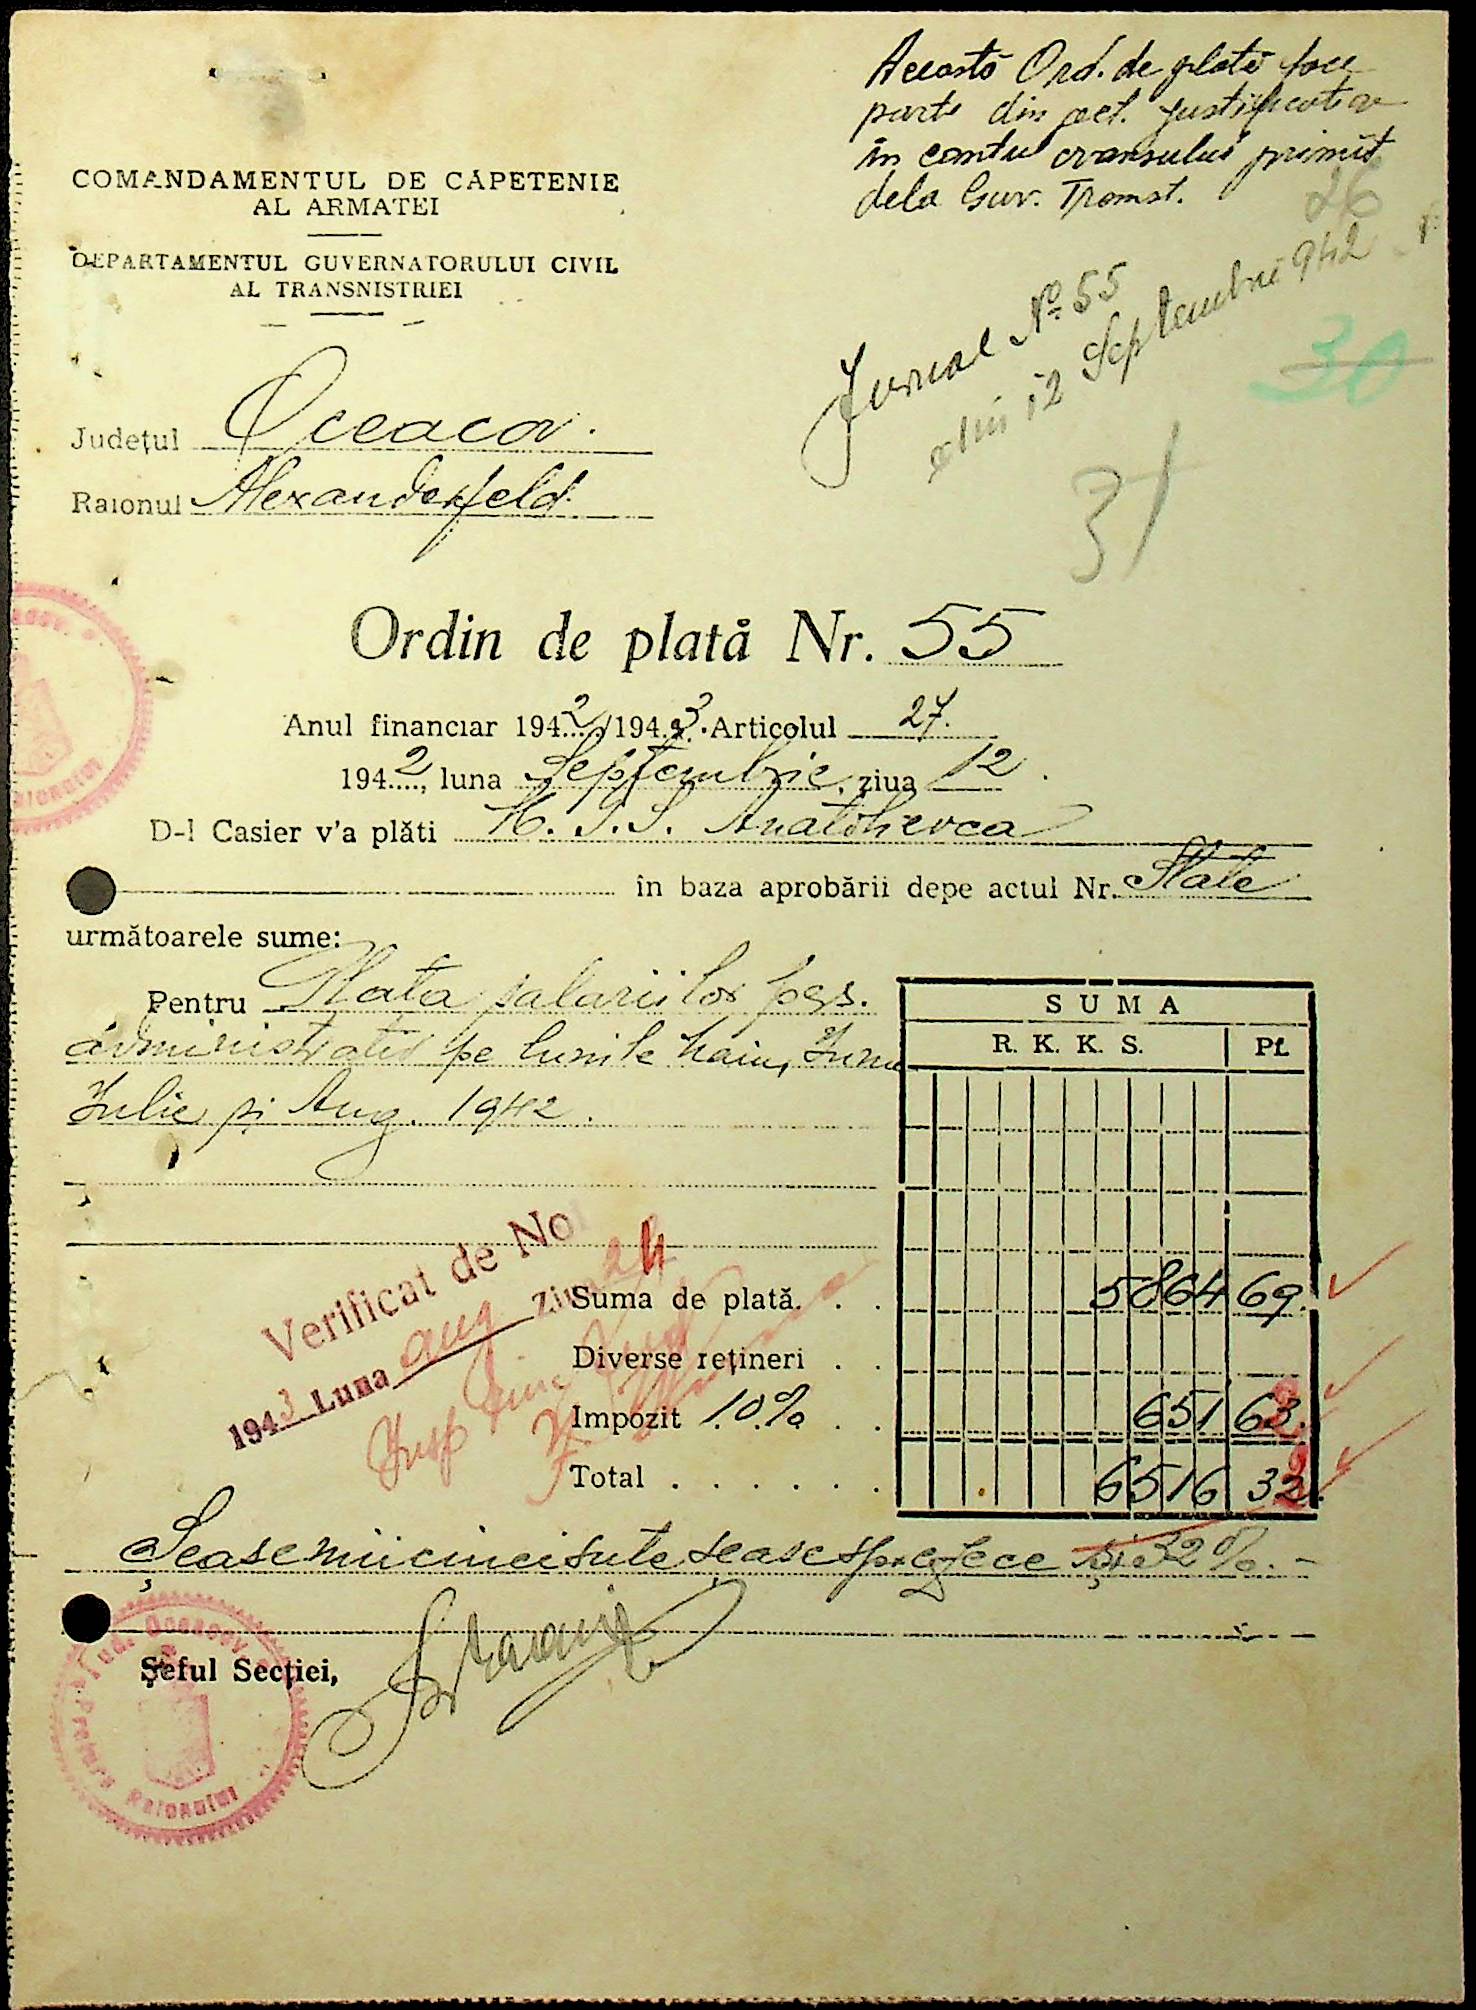 Această Ord. de plată face
parte din act. justificative
în contul avansului primit
dela Guv. Transt.
26
COMANDAMENTUL DE CAPETENIE
AL ARMATEI
DEPARTAMENTUL GUVERNATORULUI CIVIL
AL TRANSNISTRIEI
Jurnal No 55
din 12 Septembrie 942
30
31
Județul Oceacov.
Raionul Alexanderfeld.
Ordin de plată Nr. 55
Anul financiar 1942/1943. Articolul 27.
1942, luna Septembrie, ziua 12.
D-l Casier v'a plăti Anatolievca
în baza aprobării depe actul Nr. State
următoarele sume:
Pentru Plata salariilor pers.
administrativ pe lunile Maiu, Iunie
Iulie și Aug. 1942.
SUMA
R. K. K. S. Pf.
Verificat de Noi
1943 Luna aug ziua 24
Suma de plată. . . 5864 69.
Diverse rețineri . .
Impozit 10% . . 651 63.
Total . . . . . . . 6516 32.
Șeasemiicincisuteșeasesprezece și 32%. -
Șeful Secției,
Jud. Oceacov
Pretura Raionului